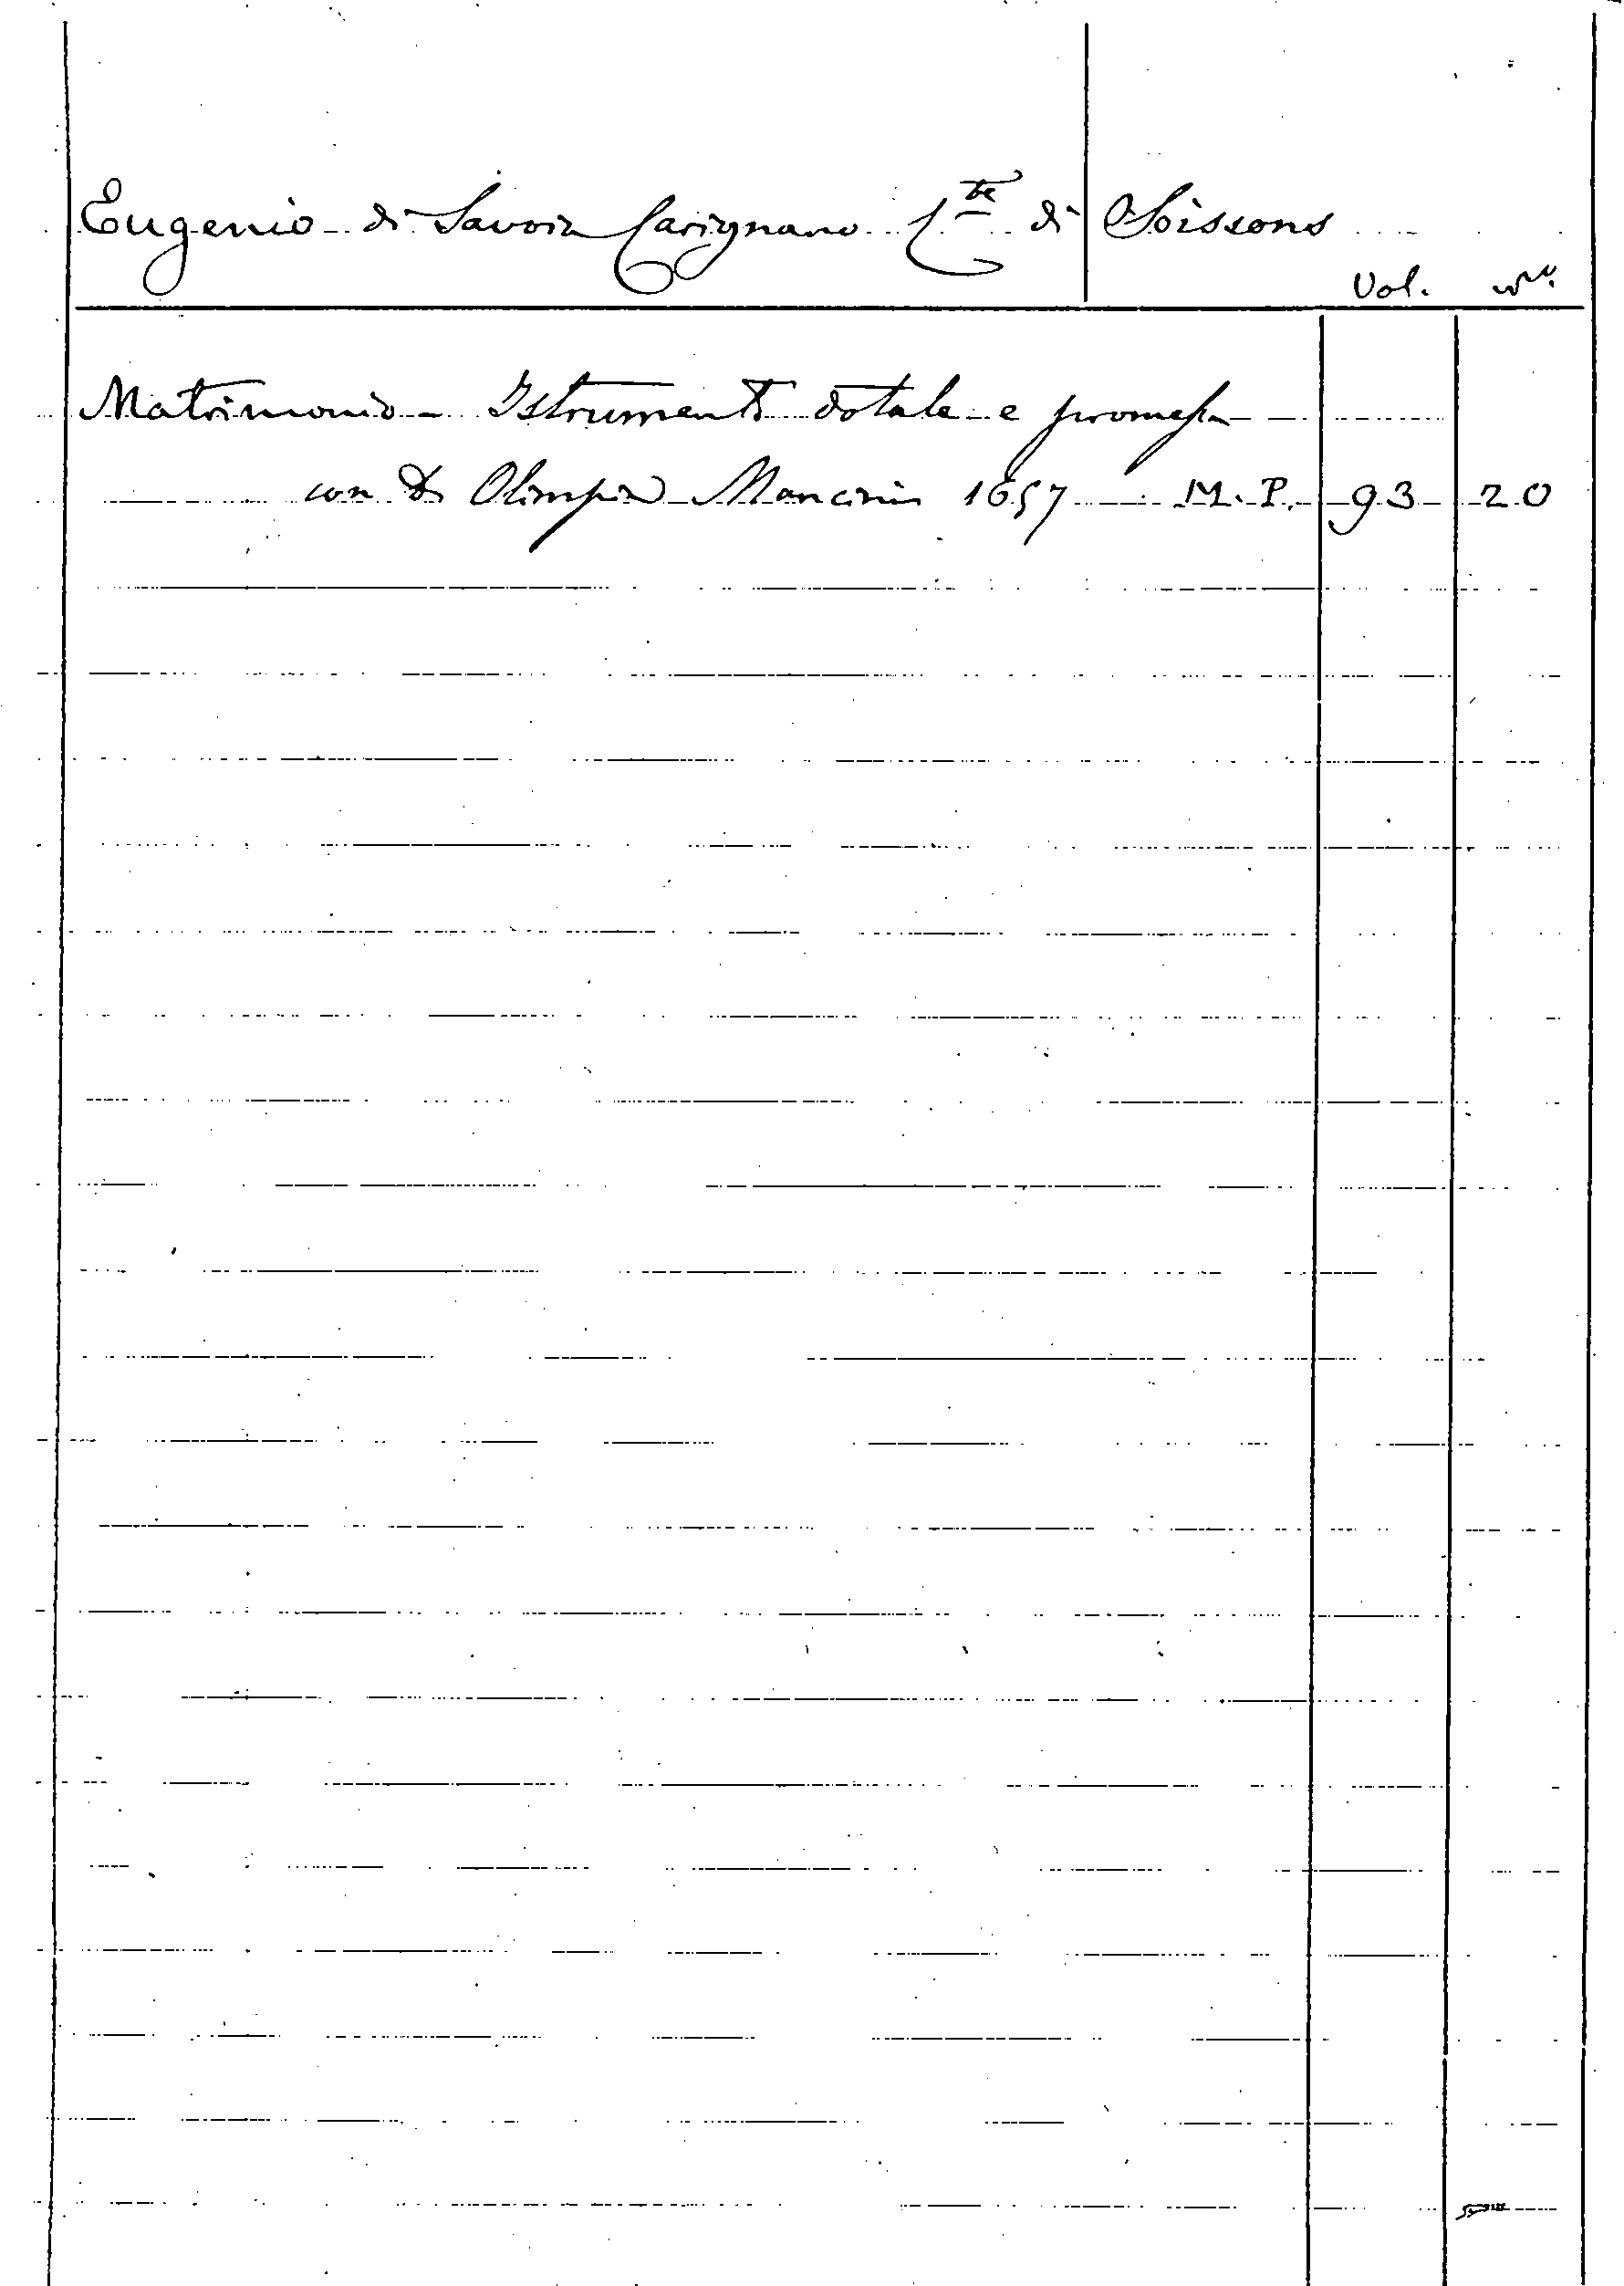 Eugenio di Savoia Carignano C.te di Soissons
Vol. n.o
Matrimonio - Istrumento dotale e promessa
con D. Olimpia Mancini 1657 M. P. 93 20